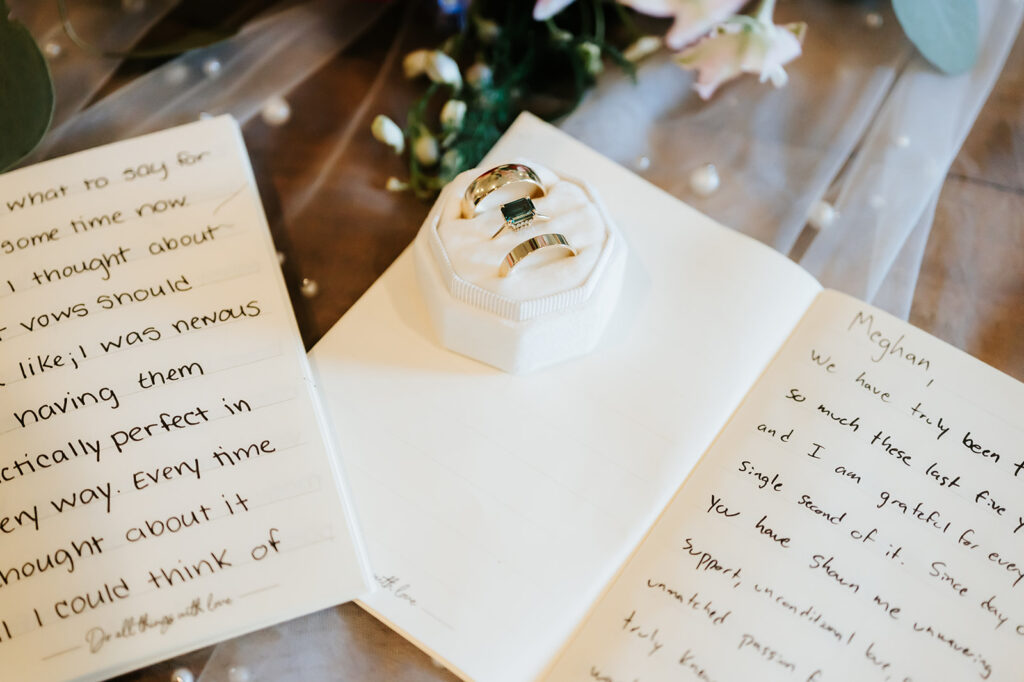 what to say for
some time now.
I thought about
vows should
like; I was nervous
having them
perfect in
way. Every time
thought about it
I could think of
Do all things with love
with love
Meghan,
We have truly been
so much these last five
and I am grateful for every
single second of it. Since day
You have shown me unwavering
support, unconditional love,
unmatched passion
truly